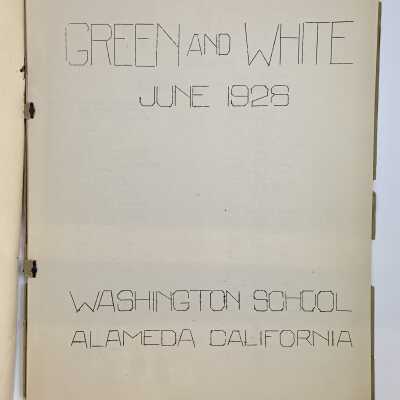 GREEN AND WHITE
JUNE 1928
WASHINGTON SCHOOL
ALAMEDA CALIFORNIA